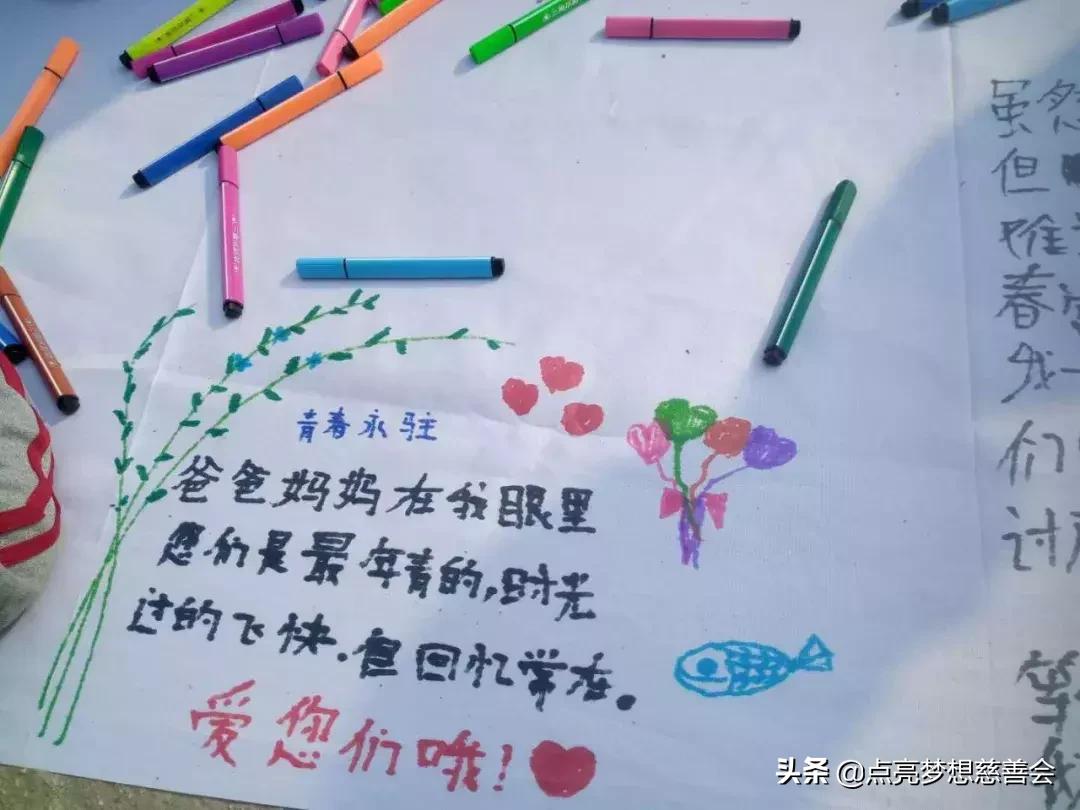 青春永驻
爸爸妈妈在我眼里
您们是最年青的,时光
过的飞快.但回忆常在。
爱您们哦!
虽然
但
难
春
我一
们
讨厌
等
头条 @点亮梦想慈善会